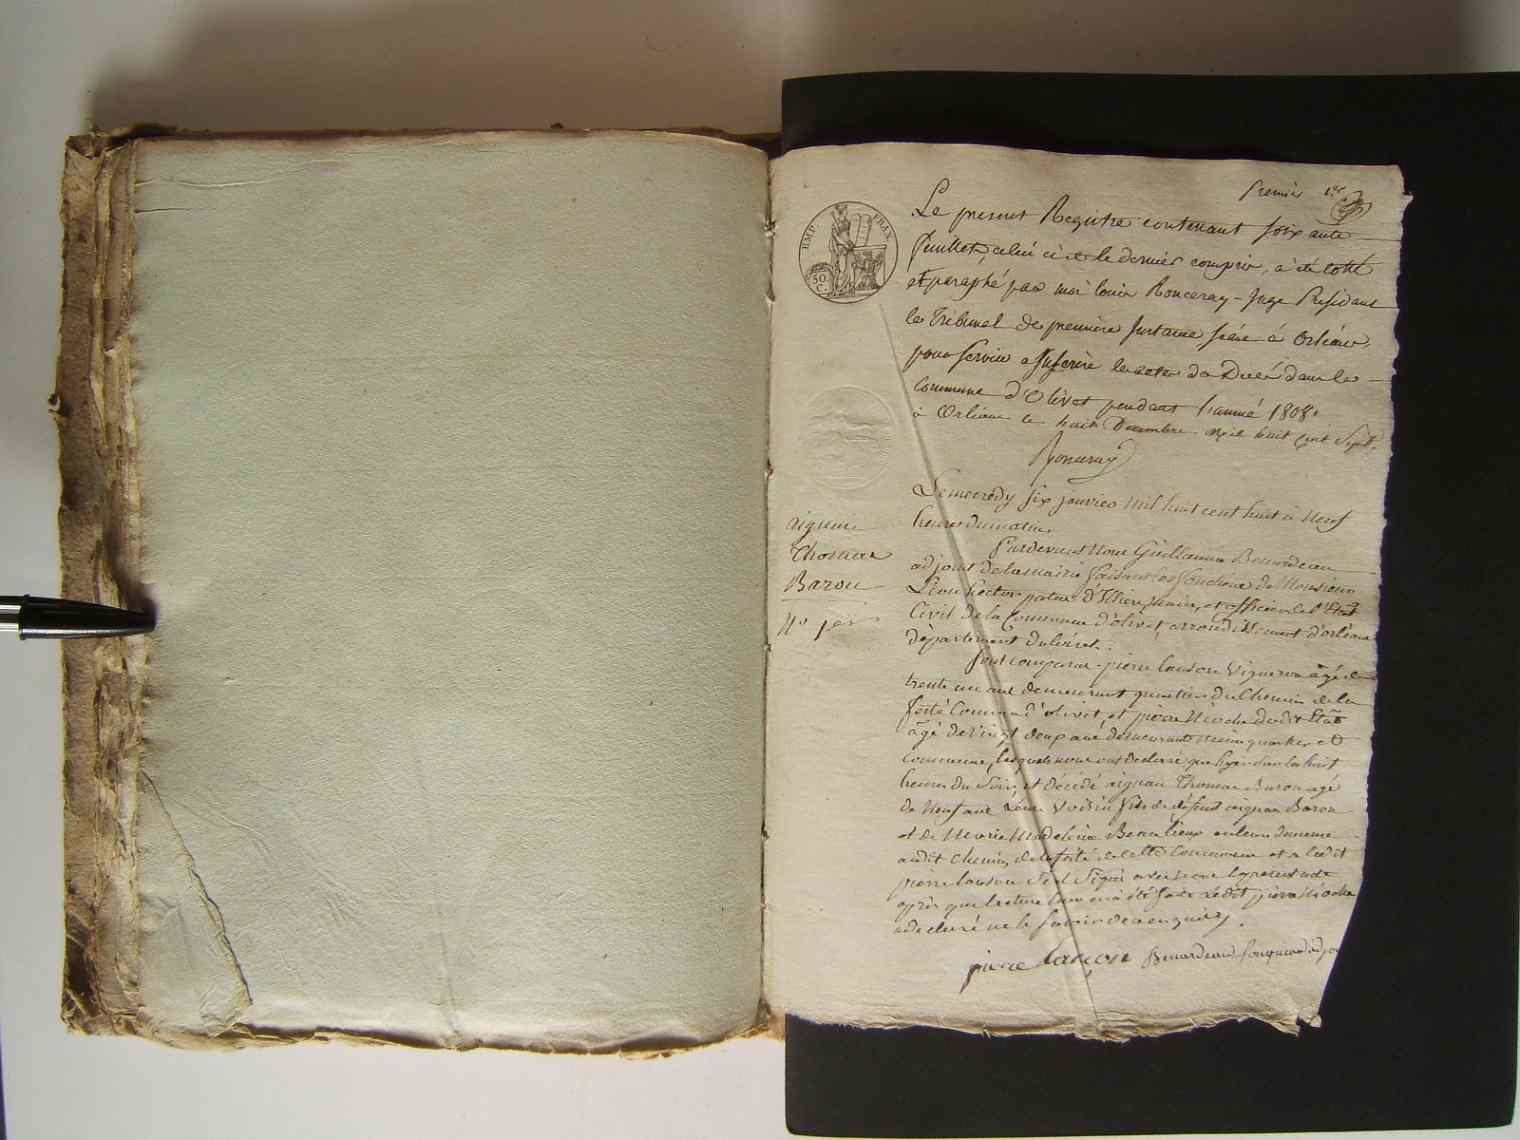 Premier 1er
EMP. FRAN.
50 C.
Le present Registre contenant Soixante
feuillets, celui ci et le dernier compris, à été cotté
et paraphé par moi Louis Ronceray - Juge Président
le Tribunal de première Instance séant à Orléans,
pour servir a Inscrire les actes de Décès dans la
commune d'Olivet pendant l'année 1808.
à Orléans le huit Décembre mil huit cent Sept.
Ronceray
Aignan
Thomas
Baron
No 1er
Le mercredy six janvier mil huit cent huit à Neuf
heures du matin
Pardevant Nous Guillaume Benardeau
adjoint de la mairie faisant les fonctions de Monsieur
Léon hector maire, et officier de l'Etat
Civil de la Commune d'olivet, arrondissement d'orléans
département du loiret.
sont comparus pierre lanson Vigneron âgé de
trente un ans demeurant quartier du Chemin de la
ferté Commune d'olivet, et pierre dudit Etat
âgé de vingt deux ans demeurant même quartier et
Commune, lesquels nous ont déclaré que hyer dans les huit
heures du soir, est décédé aignan Thomas Baron agé
de Neuf ans Leur Voisin fils de défunt aignan Baron
et de Marie Madeleine Beaulieux
audit chemin de la ferté de cette Commune et a ledit
pierre lanson Seul Signé avec nous le present acte
après que lecture leur en a été faite ledit pierre
a declaré ne le savoir de ce enquis.
pierre lançon Benardeau